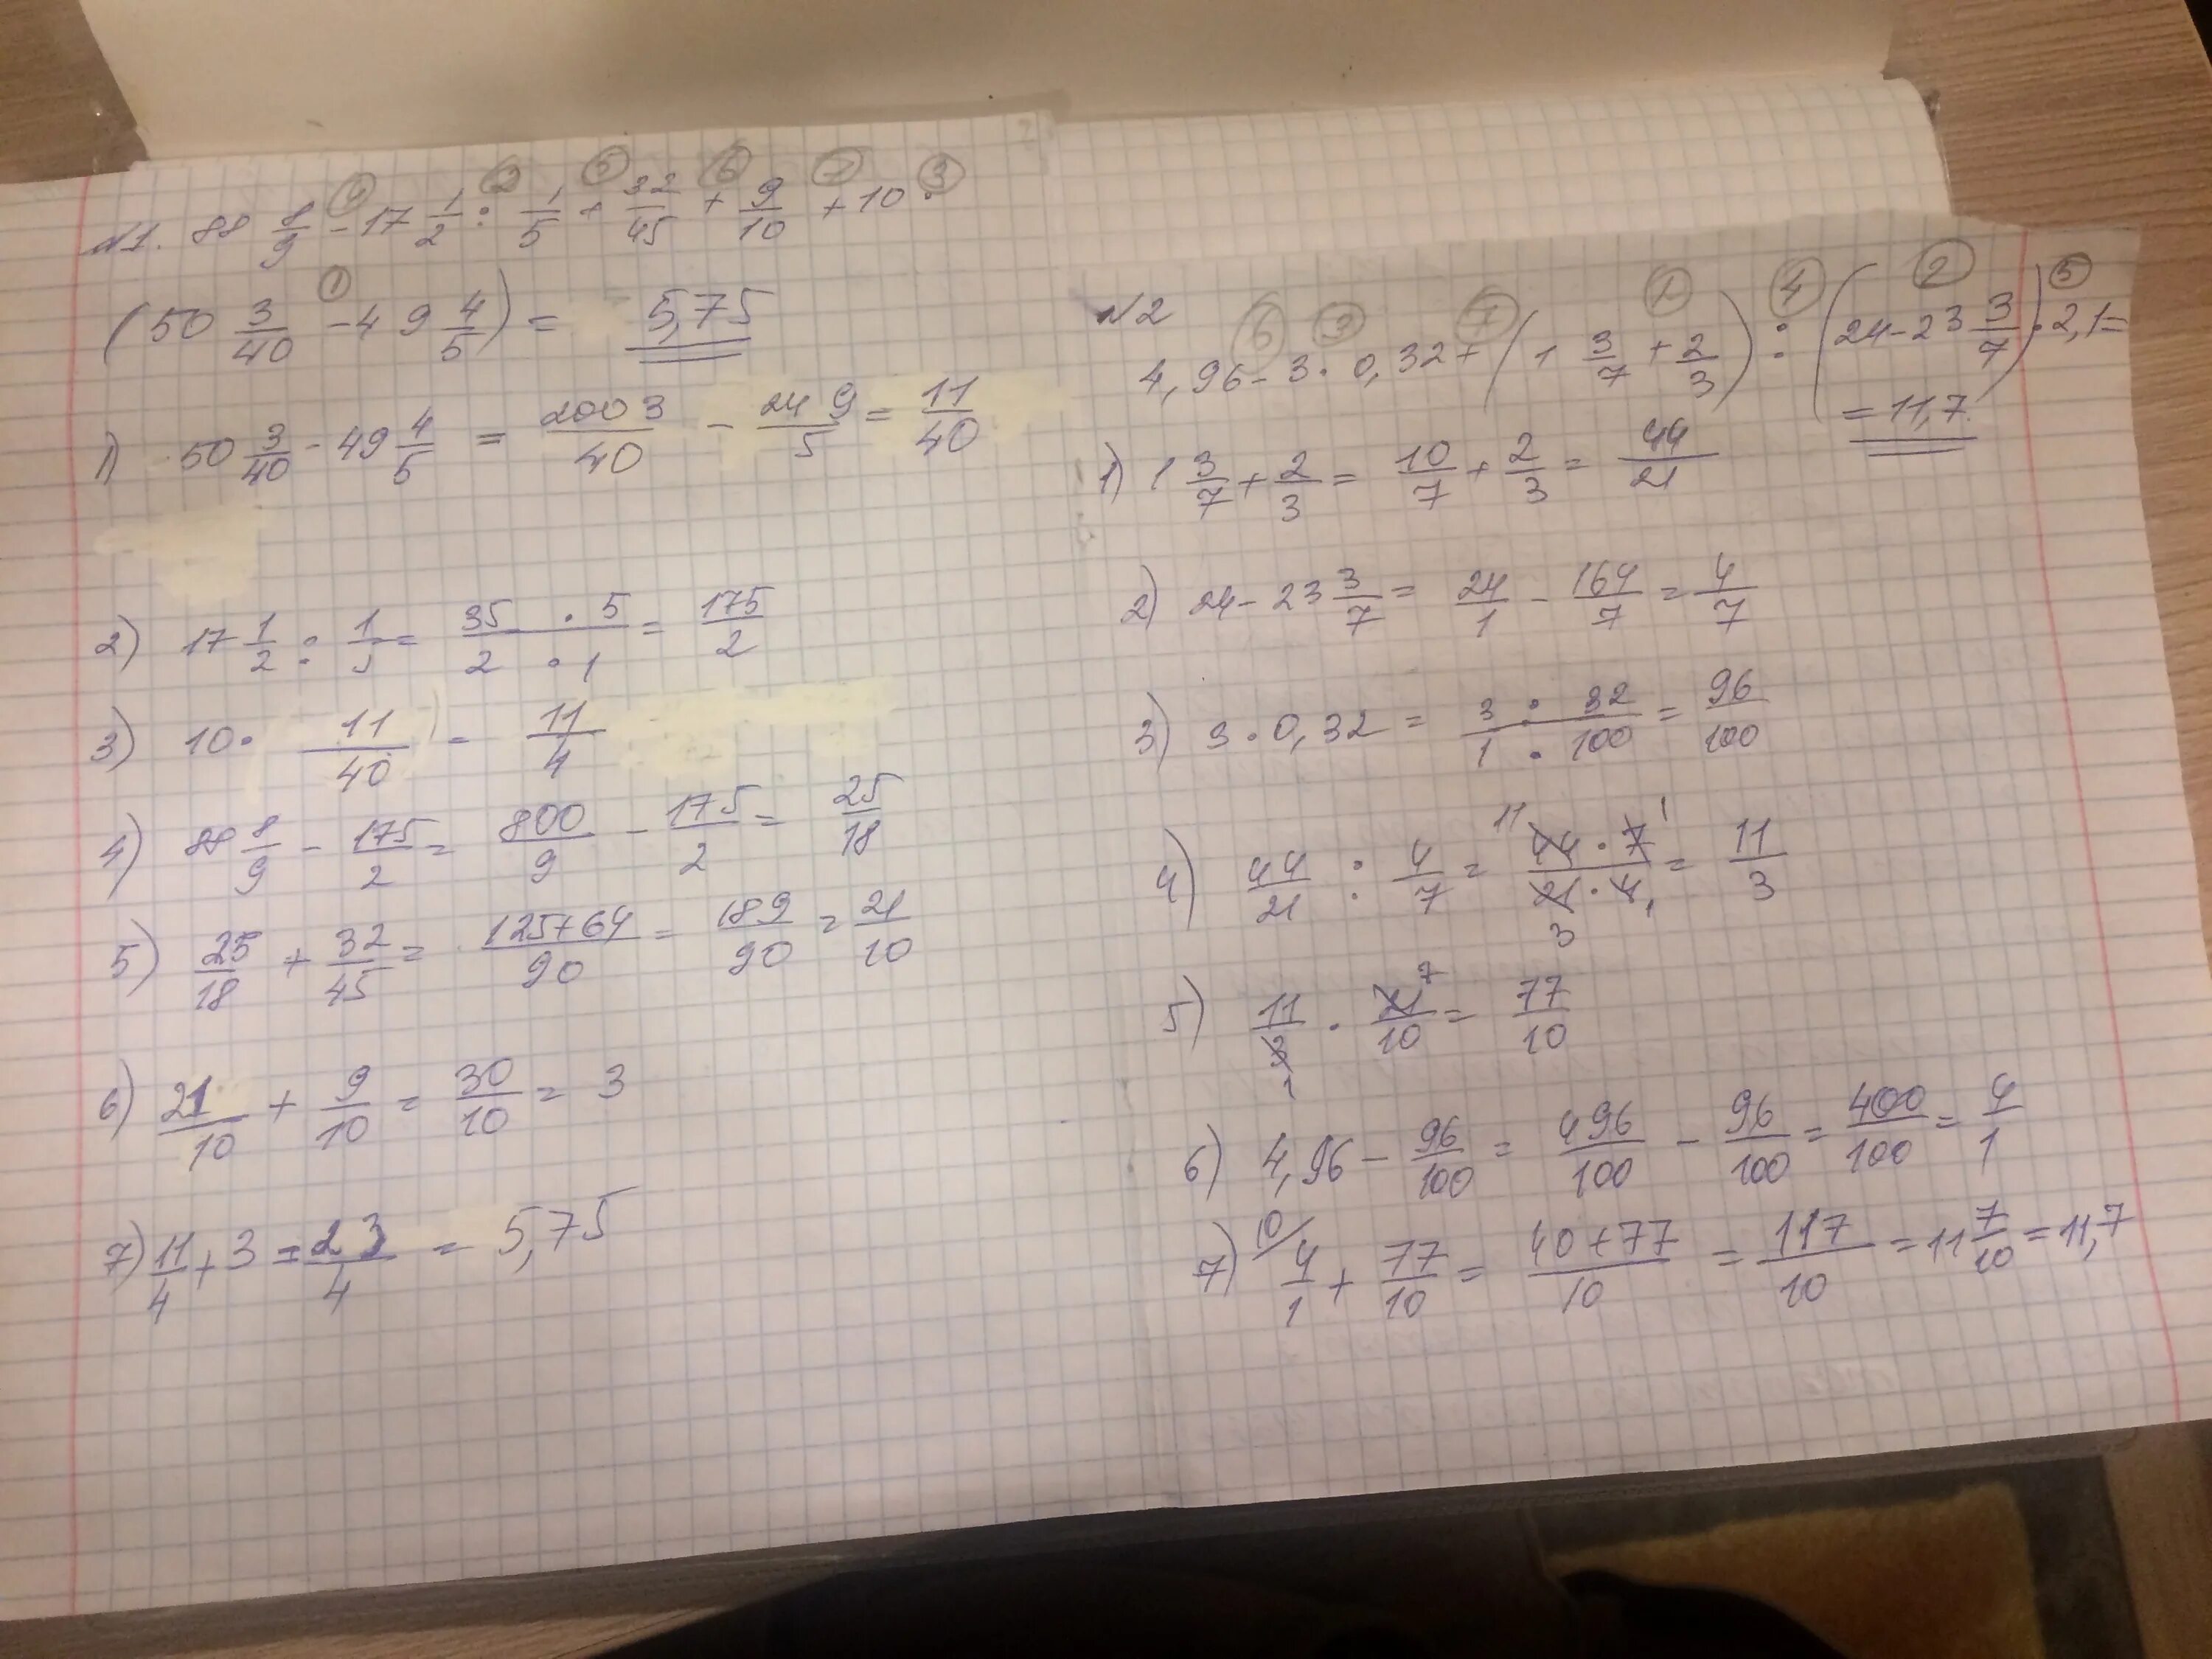 ④ ② ⑤ ⑥ ⑦ ③
№1. 88 8/9 - 17 1/2 : 1/5 + 32/45 + 9/10 + 10 ·
①
(50 3/40 - 49 4/5) = 5,75
1) 50 3/40 - 49 4/5 = 2003/40 - 249/5 = 11/40
2) 17 1/2 : 1/5 = 35 · 5/2 · 1 = 175/2
3) 10 · 11/40 = 11/4
4) 88 8/9 - 175/2 = 800/9 - 175/2 = 25/18
5) 25/18 + 32/45 = 125+64/90 = 189/90 = 21/10
6) 21/10 + 9/10 = 30/10 = 3
7) 11/4 + 3 = 23/4 = 5,75
№2
⑥ ③ ⑦ ① ④ ② ⑤
4,96 - 3 · 0,32 + (1 3/7 + 2/3) : (24 - 23 3/7) · 2,1 =
= 11,7
1) 1 3/7 + 2/3 = 10/7 + 2/3 = 44/21
2) 24 - 23 3/7 = 24/1 - 164/7 = 4/7
3) 3 · 0,32 = 3 · 32/1 · 100 = 96/100
4) 44/21 : 4/7 = 11 44 · 7 1/21 · 4 3 1 = 11/3
5) 11/3 1 · 21 7/10 = 77/10
6) 4,96 - 96/100 = 496/100 - 96/100 = 400/100 = 4/1
7) 10/ 4/1 + 77/10 = 40+77/10 = 117/10 = 11 7/10 = 11,7